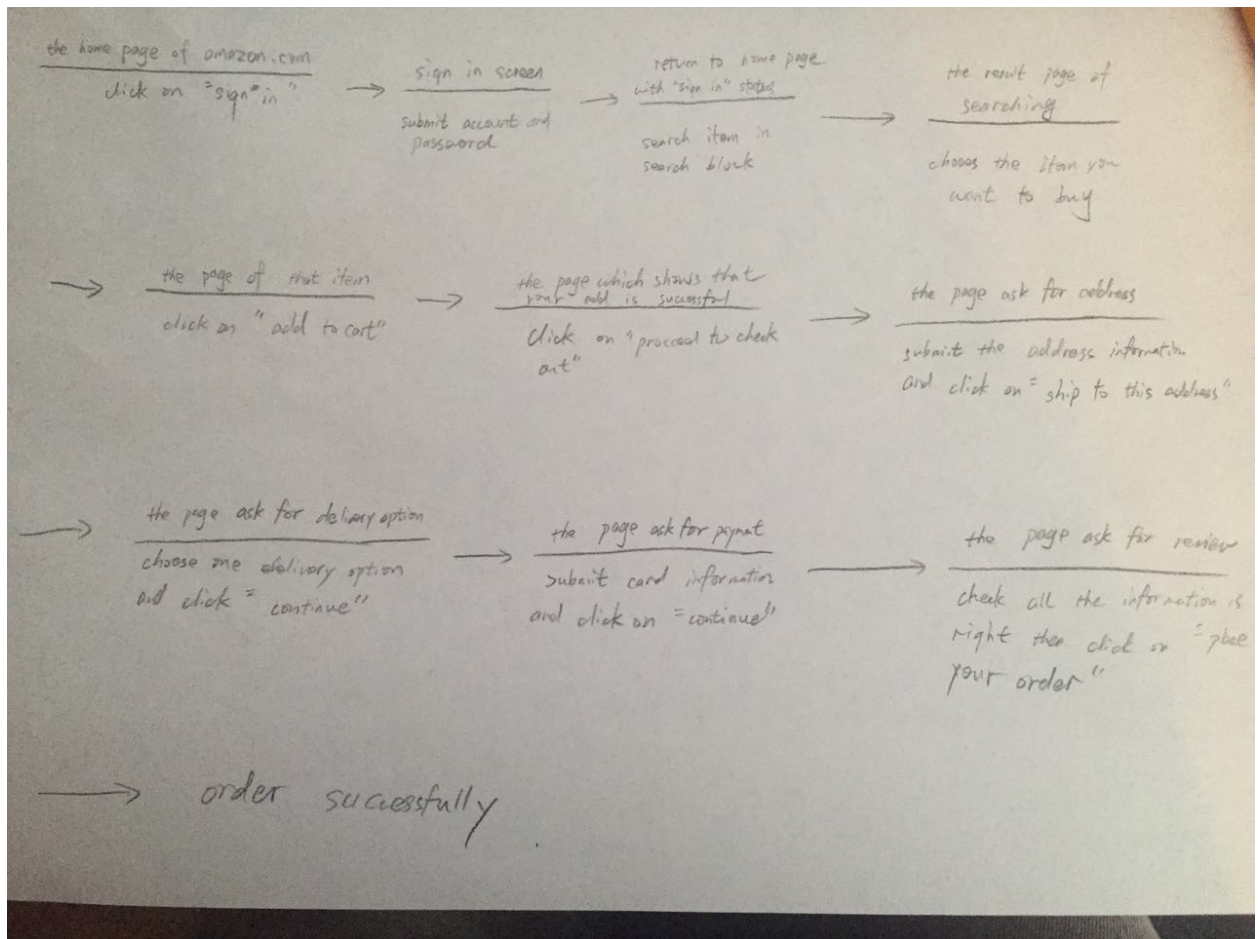 the home page of amazon.com
click on "sign in"
sign in screen
submit account and
password
return to home page
with "sign in" status
search item in
search block
the result page of
searching
the item you
want to buy
the page of that item
click on "add to cart"
the page which shows that
your add is successful
click on "proceed to check
out"
the page ask for address
submit the address information
and click on "ship to this address"
the page ask for delivery option
choose one delivery option
and click "continue"
the page ask for
submit card information
and click on "continue"
the page ask for review
check all the information is
right then click on "place
your order"
order successfully.